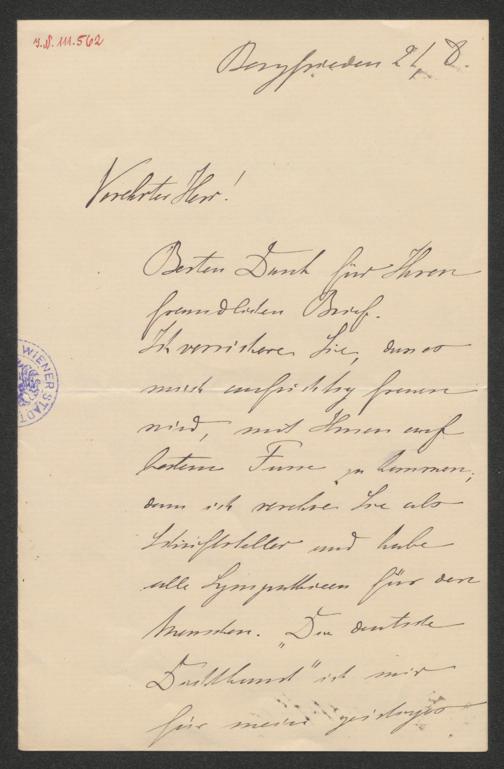 J.N. 111.562
Bergfrieden 21/8.
Verehrter Herr!
Besten Dank für Ihren
freundlichen Brief.
Ich versichere Sie, dass es
mich aufrichtig freuen
wird, mit Ihnen auf
bestem Fusse zu kommen;
denn ich verehre Sie als
Schriftsteller und habe
alle Sympathieen für den
Menschen. "Die deutsche
ist mir
für meine
WIENER STADT